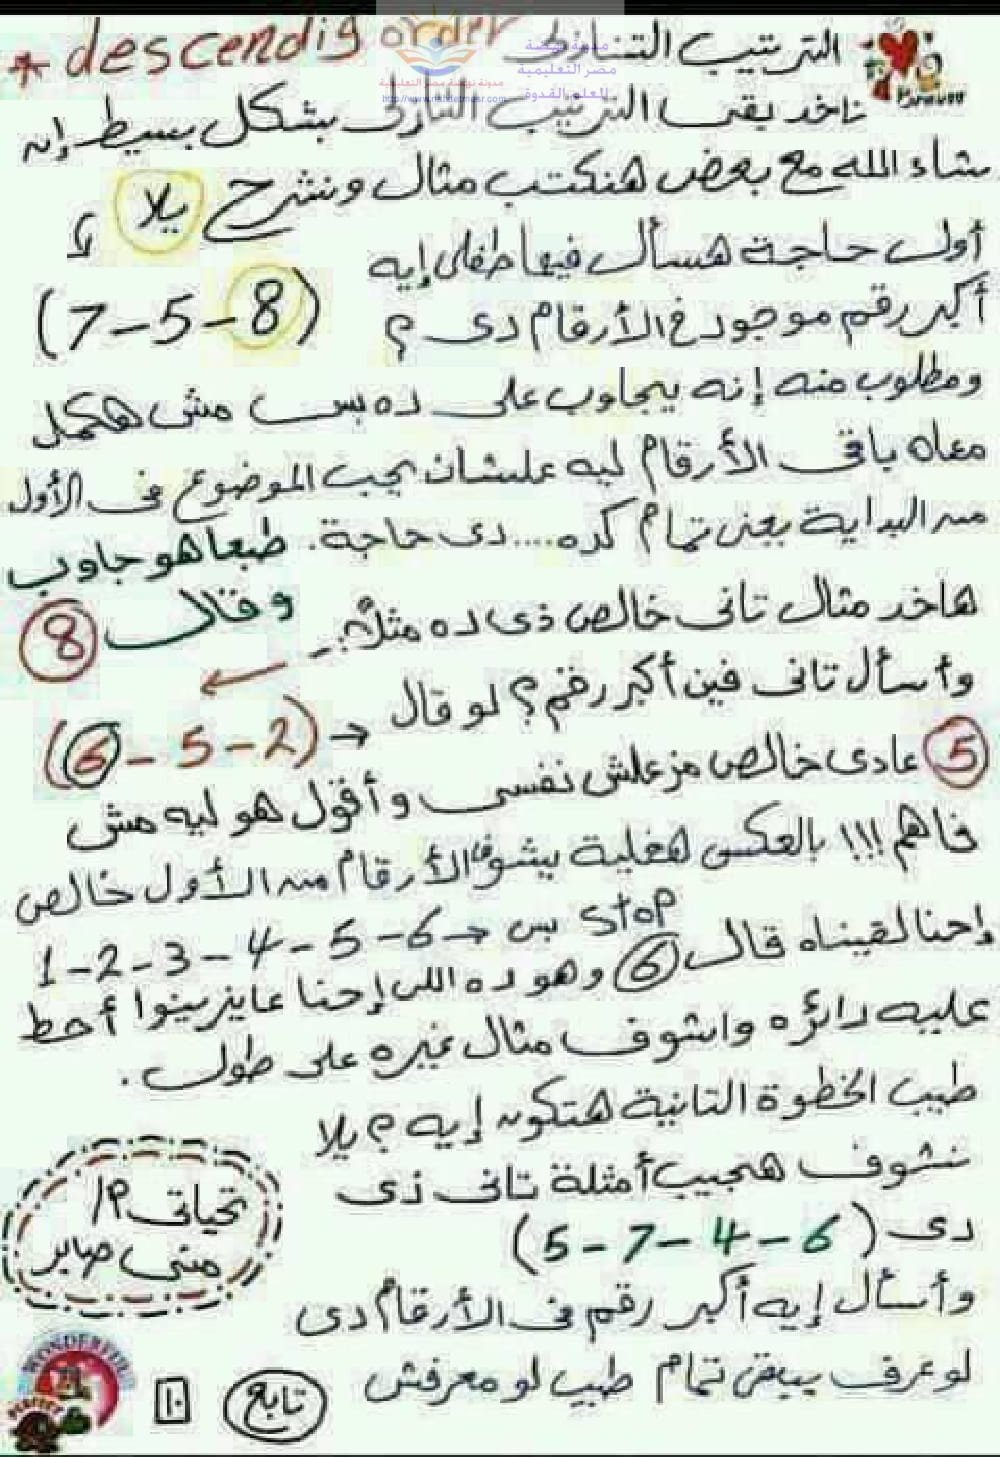 * descendig order الترتيب التنازلى
ناخد بقى الترتيب التنازلى بشكل بسيط إن
شاء الله مع بعض هنكتب مثال ونشرح يلا
أول حاجة هسأل فيها طفلى إيه
أكبر رقم موجود فى الأرقام دى ؟ (7-5-8)
ومطلوب منه إنه يجاوب على ده بس مش هكمل
معاه باقى الأرقام ليه علشان يحب الموضوع فى الأول
من البداية يعنى تمام كده.... دى حاجة. طبعا هو جاوب
وقال 8
هاخد مثال تانى خالص ذى ده مثلاً:-
وأسأل تانى فين أكبر رقم؟ لو قال → (6-5-2)
5 عادى خالص مزعلش نفسى وأقول هو ليه مش
فاهم !!! بالعكس هخليه يشوف الأرقام من الأول خالص
1-2-3-4-5-6 → بس stop
إحنا لقيناه قال 6 وهو ده اللى إحنا عايزينوا أحط
عليه دائره واشوف مثال غيره على طول.
طيب الخطوة التانية هتكون إيه ؟ يلا
نشوف هجيب أمثلة تانى ذى
دى (5-7-4-6)
وأسأل إيه أكبر رقم فى الأرقام دى
لو عرف يبقى تمام طيب لو معرفش
تحياتى م/
منى صابر
تابع
١٠
WONDERFUL
PERFECT
مصر التعليمية
للعلم القدوة